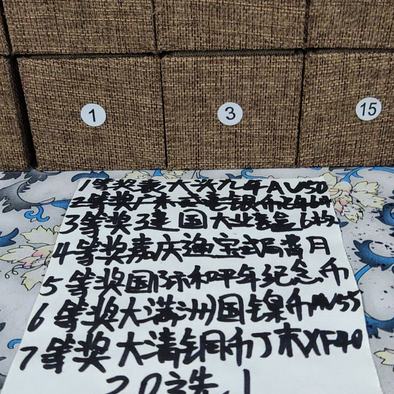 1
3
15
1等奖袁大头九年AU50
2等奖广东
3等奖建国大业套盒
4等奖嘉庆通宝背月
5等奖国际和平年纪念币
6等奖大满洲国镍币AU55
7等奖大清铜币丁未XF40
20选1